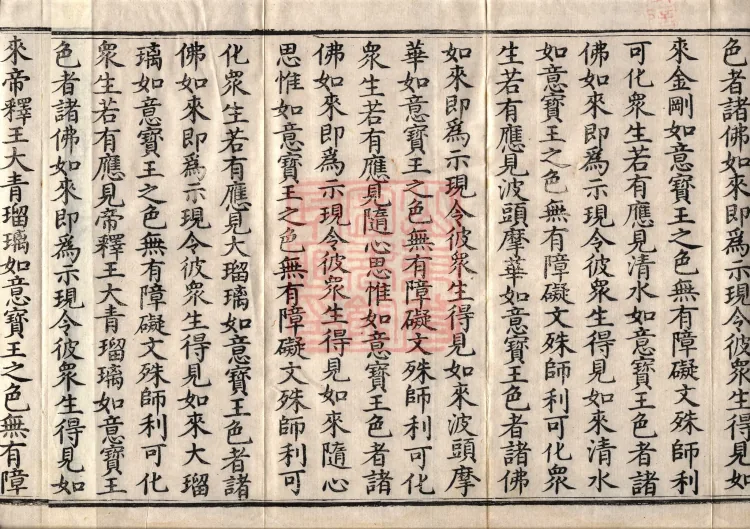 色者諸佛如來即爲示現令彼衆生得見如
來金剛如意寶王之色無有障礙文殊師利
可化衆生若有應見清水如意寶王色者諸
佛如來即爲示現令彼衆生得見如來清水
如意寶王之色無有障礙文殊師利可化衆
生若有應見波頭摩華如意寶王色者諸佛
如來即爲示現令彼衆生得見如來波頭摩
華如意寶王之色無有障礙文殊師利可化
衆生若有應見隨心思惟如意寶王色者諸
佛如來即爲示現令彼衆生得見如來隨心
思惟如意寶王之色無有障礙文殊師利可
化衆生若有應見大瑠璃如意寶王色者諸
佛如來即爲示現令彼衆生得見如來大瑠
璃如意寶王之色無有障礙文殊師利可化
衆生若有應見帝釋王大青瑠璃如意寶王
色者諸佛如來即爲示現令彼衆生得見如
來帝釋王大青瑠璃如意寶王之色無有障